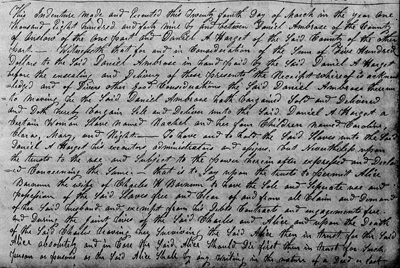 This Indenture made and Executed this Twenty fourth Day of March in the year One
Thousand Eight hundred and forty by and between Daniel Ambrose of the County
of of the first part and Daniel A Harget of the Said County of the other
part — Witnesseth that for and in Consideration of the Sum of Five Hundred
Dollars to the Said Daniel Ambrose in hand paid by the Said Daniel A Harget
before the ensealing and Delivery of these presents the Receipt whereof is acknow
ledged and of Divers other good Considerations the Said Daniel Ambrose thereun
to moving he the Said Daniel Ambrose hath Bargained Sold and Delivered
and Doth hereby Bargain Sell and Deliver unto the Said Daniel A Harget a
Certain Woman Slave named Rachel and her Children named Caroline
Maria, Mary, and Wright — To have and to hold the Said Slaves unto the Said
Daniel A Harget his executors, administrators and assigns but Nevertheless upon
the trusts to the use and Subject to the power herein after expressed and Declar
ed Concerning the Same — that is to Say upon the trusts to permit Alice
the wife of Charles W to have the Sole and Seperate use and
possession of the Said Slaves free and Clear of and from all Claim and Demand
of her Said husband and exempt from his Debts Contracts and engagements for
and During the joint lives of the Said Charles and Alice and upon the Death
of the Said Charles leaving her Surviving the Said Alice then in trust for the Said
Alice absolutely and in Case the Said Alice Should Die first then in trust for Such
person or persons as the Said Alice Shall by any Writing in the nature of a Deed or last